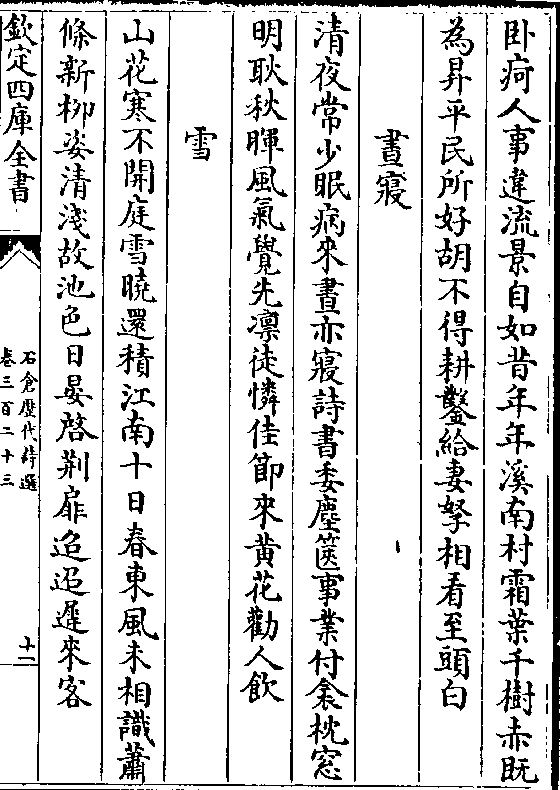 卧疴人事違流景自如昔年年溪南村霜葉千樹赤既
為昇平民所好胡不得耕鑿給妻孥相看至頭白
晝寢
清夜常少眠病來晝亦寢詩書委塵篋事業付衾枕窓
明耿秋暉風氣覺先凛徒憐佳節來黄花勸人飲
雪
山花寒不開庭雪曉還積江南十日春東風未相識蕭
條新柳姿清淺故池色日晏啓荆扉迢迢遲來客
欽定四庫全書
石倉歷代詩選
卷三百二十三
十一